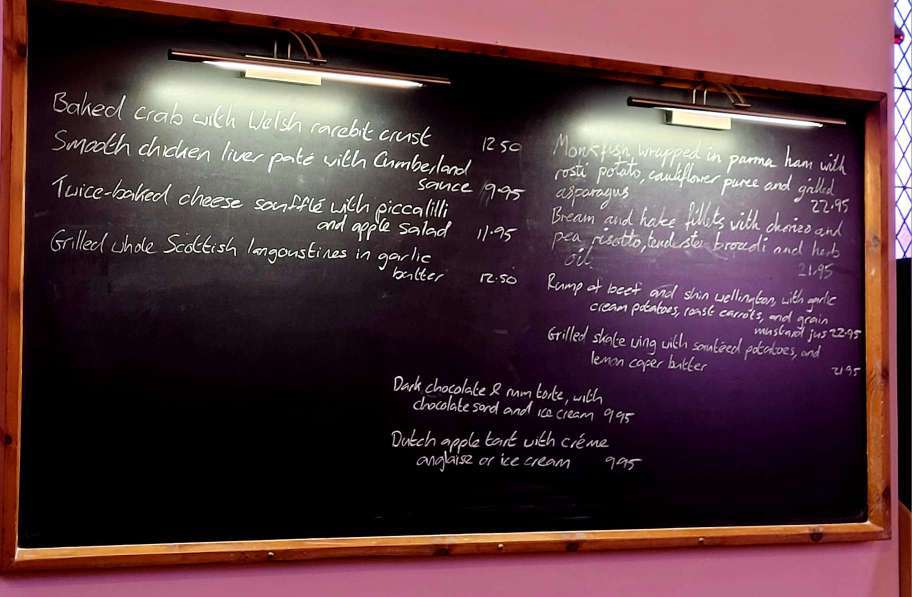 Baked crab with Welsh rarebit crust 12.50
Smooth chicken liver paté with Cumberland
sauce 9.95
Twice-baked cheese soufflé with piccalilli
and apple salad 11.95
Grilled whole Scottish langoustines in garlic
butter 12.50
Monkfish wrapped in parma ham with
rosti potato, cauliflower puree and grilled
asparagus 22.95
Bream and hake fillets with chorizo and
pea risotto, tenderstem broccoli and herb
oil 21.95
Rump of beef and shin wellington, with garlic
cream potatoes, roast carrots, and grain
mustard jus 22.95
Grilled skate wing with sautéed potatoes, and
lemon caper butter 21.95
Dark chocolate & rum torte, with
chocolate sand and ice cream 9.95
Dutch apple tart with créme
anglaise or ice cream 9.95